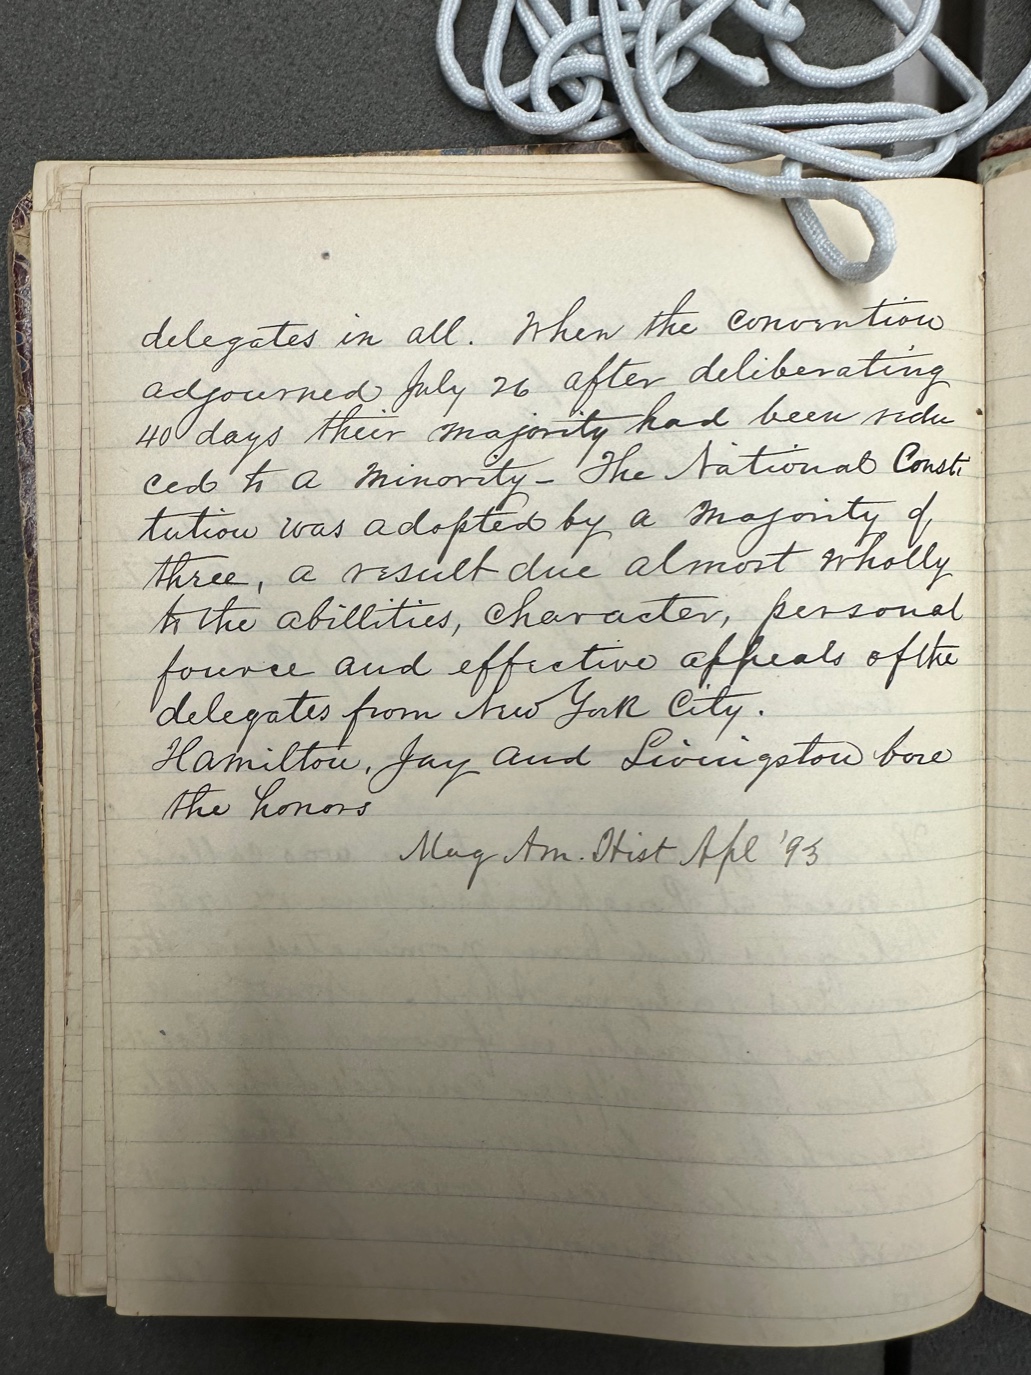 delegates in all. When the convention
adjourned July 26 after deliberating
40 days their majority had been redu
ced to a minority – The National Consti
tution was adopted by a majority of
three, a result due almost wholly
to the abillities, character, personal
fource and effective appeals of the
delegates from New York City.
Hamilton, Jay and Livingston bore
the honors
Mag Am. Hist Apl '93